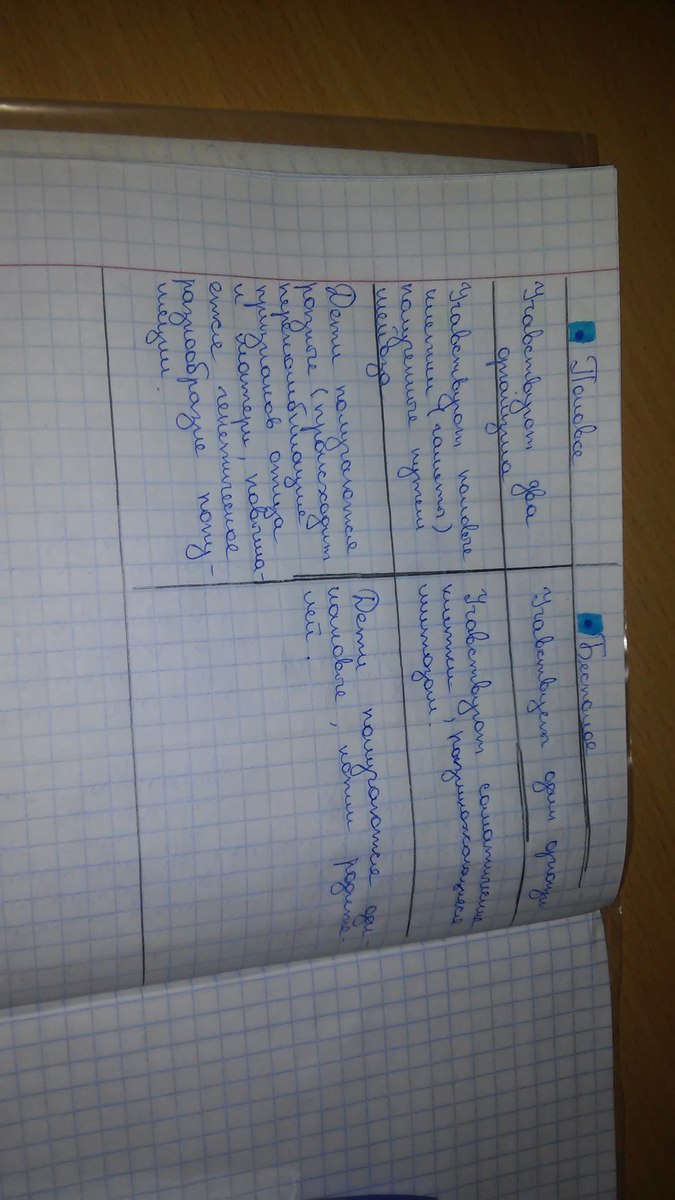 Половое
Бесполое
Учавствуют два
организма
Учавствует один организм
Учавствуют половые
клетки (гаметы)
полученные путем
мейоза
Учавствуют соматические
клетки, размножающиеся
митозом.
Дети получаются
разные (происходит
перекомбинация
признаков отца
и матери, повыша-
ется генетическое
разнообразие попу-
ляции.
Дети получаются оди-
наковые, копии родите-
лей.